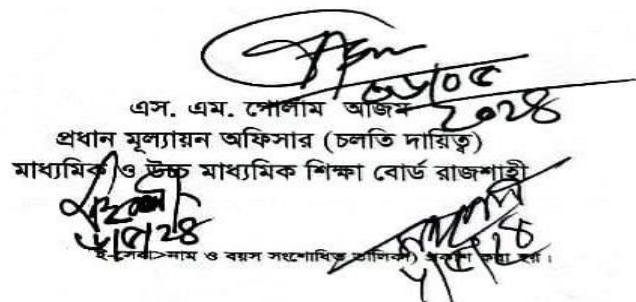 ০৮/০৫
২০২৪
এস. এম. গোলাম আজম
প্রধান মূল্যায়ন অফিসার (চলতি দায়িত্ব)
মাধ্যমিক ও উচ্চ মাধ্যমিক শিক্ষা বোর্ড রাজশাহী
৮/৫/২৪
৮/৫/২৪
ই-সেবা>নাম ও বয়স সংশোধিত তালিকা) প্রকাশ করা হয়।